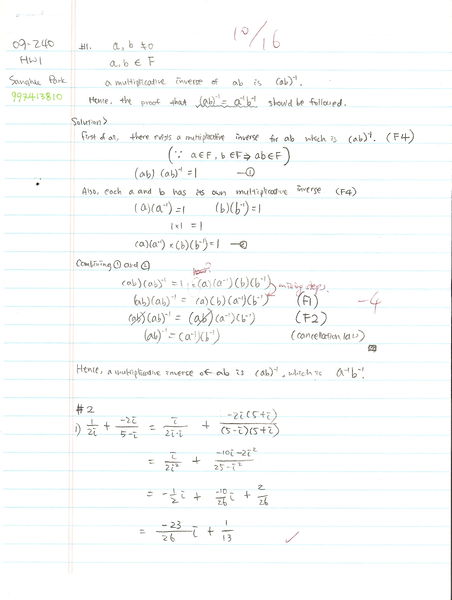 10/16
09-240
HW1
Sanghee Park
994413810
#1. a, b ≠ 0
a, b ∈ F
a multiplicative inverse of ab is (ab)⁻¹.
Hence, the proof that (ab)⁻¹ = a⁻¹b⁻¹ should be followed.
Solution>
First of all, there exists a multiplicative inverse for ab which is (ab)⁻¹. (F4)
(∵ a∈F, b∈F ⇒ ab∈F)
(ab)(ab)⁻¹ = 1 —①
Also, each a and b has its own multiplicative inverse (F4)
(a)(a⁻¹) = 1 (b)(b⁻¹) = 1
1×1 = 1
(a)(a⁻¹)×(b)(b⁻¹) = 1 —②
Combining ① and ②
(ab)(ab)⁻¹ = 1 = (a)(a⁻¹)(b)(b⁻¹) missing steps.
(ab)(ab)⁻¹ = (a)(b)(a⁻¹)(b⁻¹) (F1) -4
(ab)(ab)⁻¹ = (ab)(a⁻¹)(b⁻¹) (F2)
(ab)⁻¹ = (a⁻¹)(b⁻¹) (cancellation law)
Hence, a multiplicative inverse of ab is (ab)⁻¹, which is a⁻¹b⁻¹.
#2
i) 1/2i + -2i/5-i = i/2i·i + -2i(5+i)/(5-i)(5+i)
= i/2i² + -10i-2i²/25-i²
= -1/2 i + -10/26 i + 2/26
= -23/26 i + 1/13 ✓